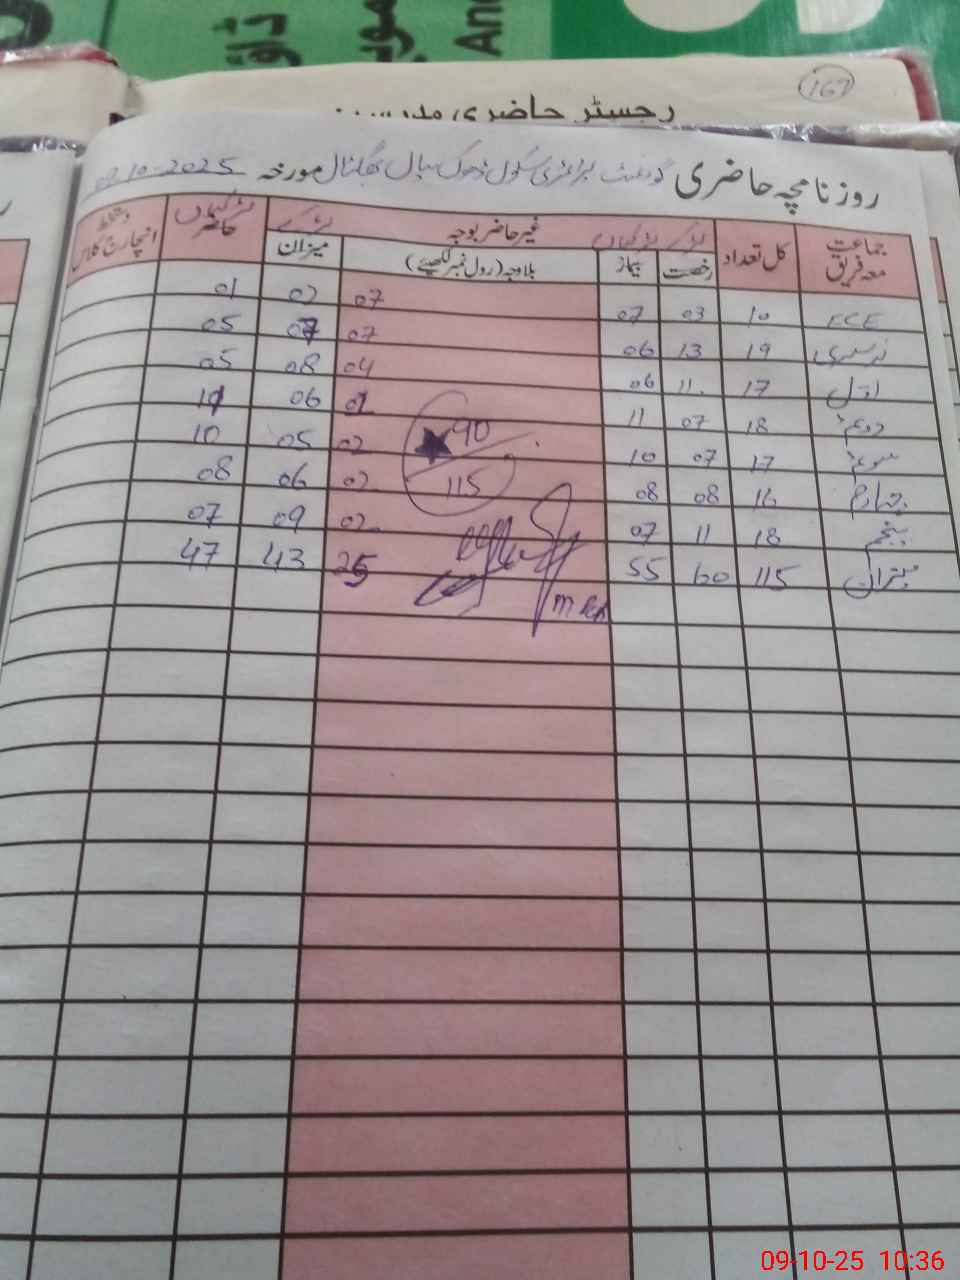 ڈاؤ
موبا
And
167
رجسٹر حاضری مدرسہ
روزنامچہ حاضری گورنمنٹ پرائمری سکول ڈھوک سیال مورخہ 09-10-2025
جماعت معہ فریق کل تعداد غیر حاضر بوجہ لڑکے لڑکیاں لڑکے لڑکیاں حاضر دستخط انچارج کلاس
رخصت بیمار بلاوجہ (رول نمبر لکھیئے) میزان
ECE 10 03 07 07 02 01
نرسری 19 13 06 07 07 05
اول 17 11 06 04 08 05
دوئم 18 07 11 01 06 11
سوئم 17 07 10 02 05 10
چہارم 16 08 08 02 06 08
پنجم 18 11 07 02 09 07
میزان 115 60 55 25 43 47
90
115
09-10-25 10:36